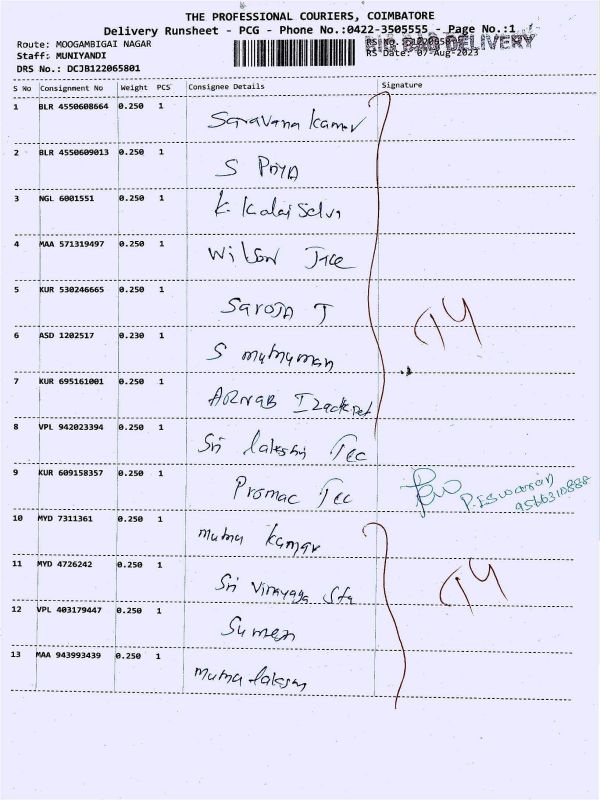 THE PROFESSIONAL COURIERS, COIMBATORE
Delivery Runsheet - PCG - Phone No.:0422-3505555 - Page No.:1
Route: MOOGAMBIGAI NAGAR
AIR BAG DELIVERY
Staff: MUNIYANDI RS Date: 07-Aug-2023
DRS No.: DCJB122065801
S No Consignment No Weight PCS Consignee Details Signature
1 BLR 4550608664 0.250 1 Saravana Kumar
2 BLR 4550609013 0.250 1 S Priya
3 NGL 6001551 0.250 1 K. Kalai Selvi
4 MAA 571319497 0.250 1 Wilson
5 KUR 530246665 0.250 1 Saroja T
6 ASD 1202517 0.230 1 S
7 KUR 695161001 0.250 1 ARNAB
8 VPL 942023394 0.250 1 Sri Tec
9 KUR 609158357 0.250 1 Promac Tec P. Eswaran
9566310888
10 MYD 7311361 0.250 1 Kumar
11 MYD 4726242 0.250 1 Sri
12 VPL 403179447 0.250 1
13 MAA 943993439 0.250 1